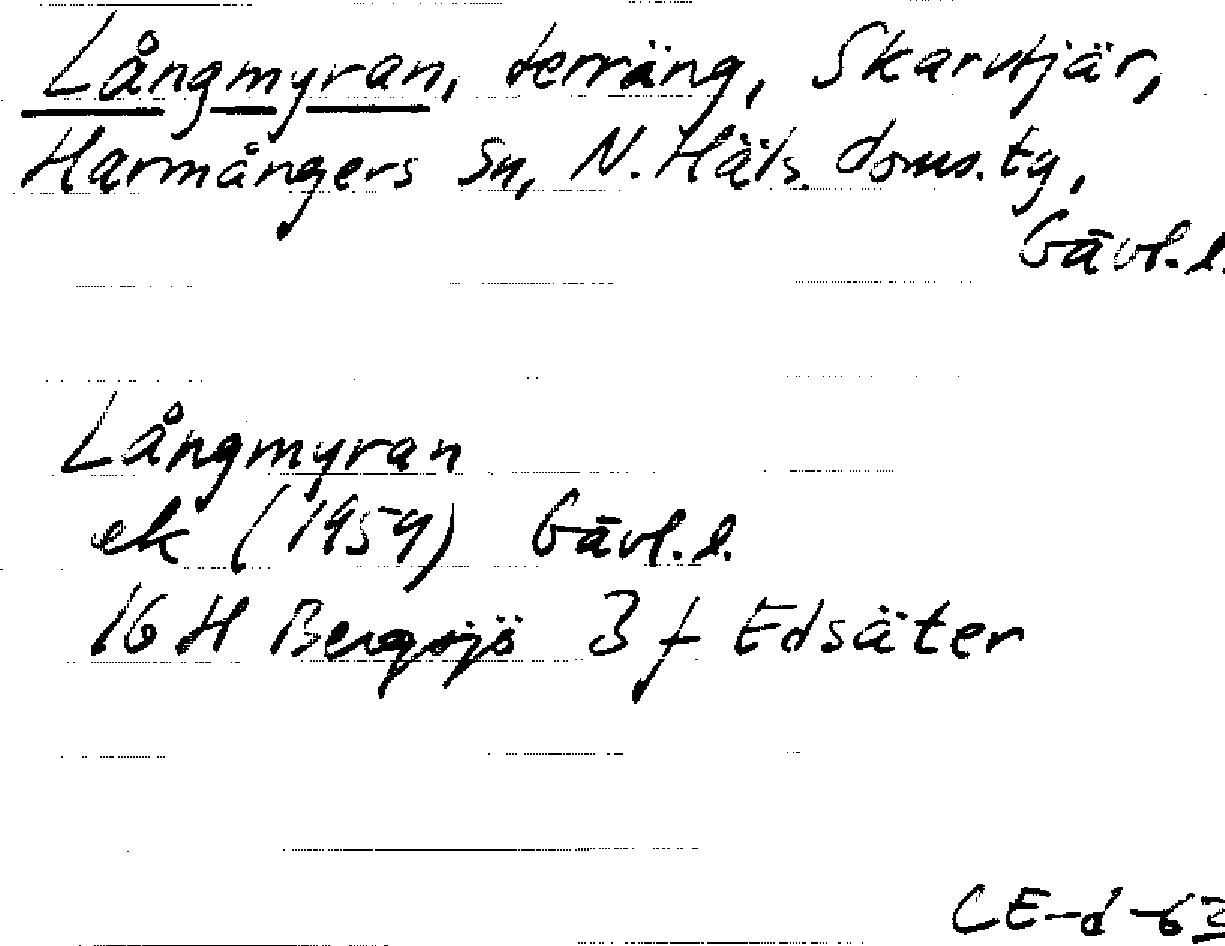 Långmyran, terräng, Skarvtjär,
Harmångers Sn, N. Häls. doms.tg,
Gävl.l.
Långmyran
ek (1959) Gävl.l.
16 H Bergsjö 3 f Edsäter
CE-d-62